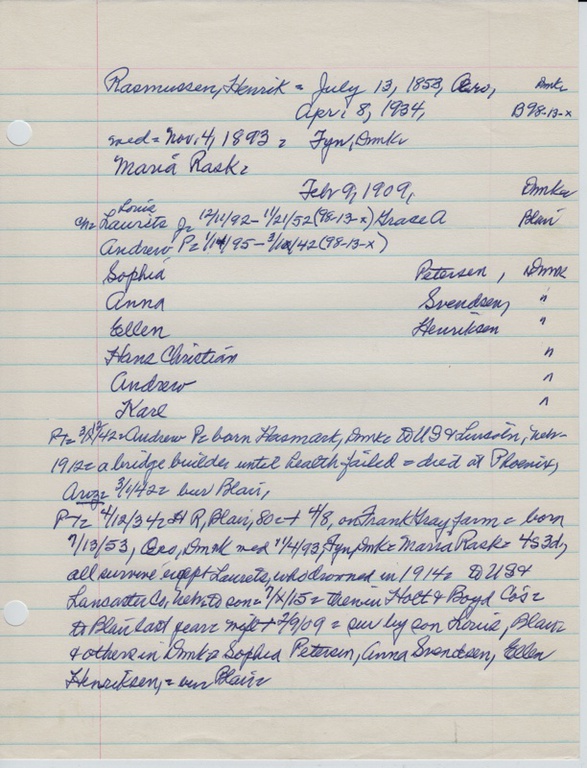 Rasmussen, Henrik = July 13, 1853, Aero, Dmk=
Apr. 8, 1934, B98-13-x
med = Nov. 4, 1893 = Fyn, Dmk=
Maria Rask=
Feb 9, 1909, Dmk=
Louis
ch= Laurits J= 12/11/92-11/21/52 (98-13-x) Grace A Blair
Andrew P= 1/14/95-3/10/42 (98-13-x)
Sophia Petersen, Dmk
Anna Svendsen, "
Ellen Henriksen "
Hans Christian "
Andrew "
Karl "
PT= 3/12/42= Andrew P= born Hasmark, Dmk= to US & Lincoln, Neb-
1912= a bridge builder until health failed = died at Phoenix,
Ariz= 3/1/42= bur Blair,
PT= 4/12/34= H R, Blair, 80= + 4/8, on Frank Gray farm = born
7/13/53, Aero, Dmk med 11/4/93, Fyn, Dmk= Maria Rask= 4s 3d,
all survive except Laurits, who drowned in 1914= to US &
Lancaster Co, Neb, to son= 7/x/15= then in Holt & Boyd Co's=
to Blair last year= wife + 2/9/09 = sur by son Louis, Blair=
& others in Dmk= Sophia Petersen, Anna Svendsen, Ellen
Henriksen,= bur Blair=